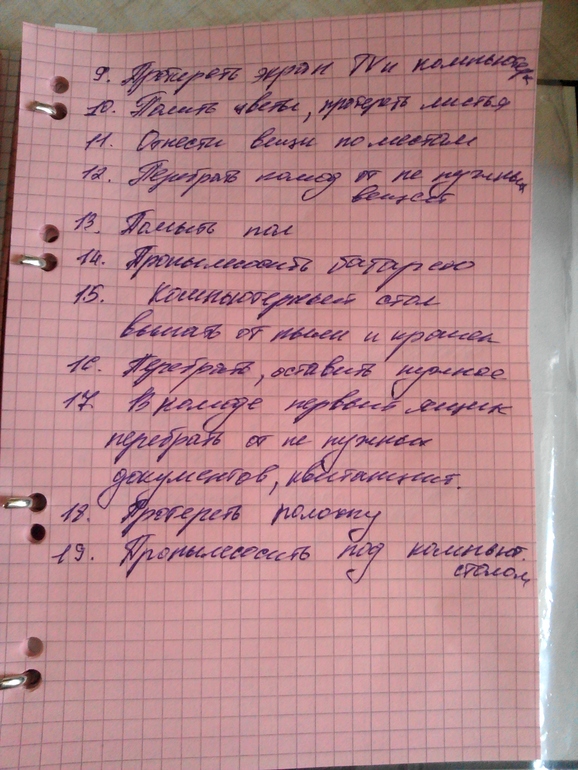 9. Протереть экран TV и компьютер
10. Полить цветы, протереть листья
11. Отнести вещи по местам
12. Перебрать комод от не нужных
вещей
13. Помыть пол
14. Пропылесосить батарею
15. Компьютерный стол
вымыть от пыли и крошек
16. Перебрать, оставить нужное
17. В комоде первый ящик
перебрать от не нужных
документов, квитанций.
18. Протереть
19. Пропылесосить под компьют.
столом